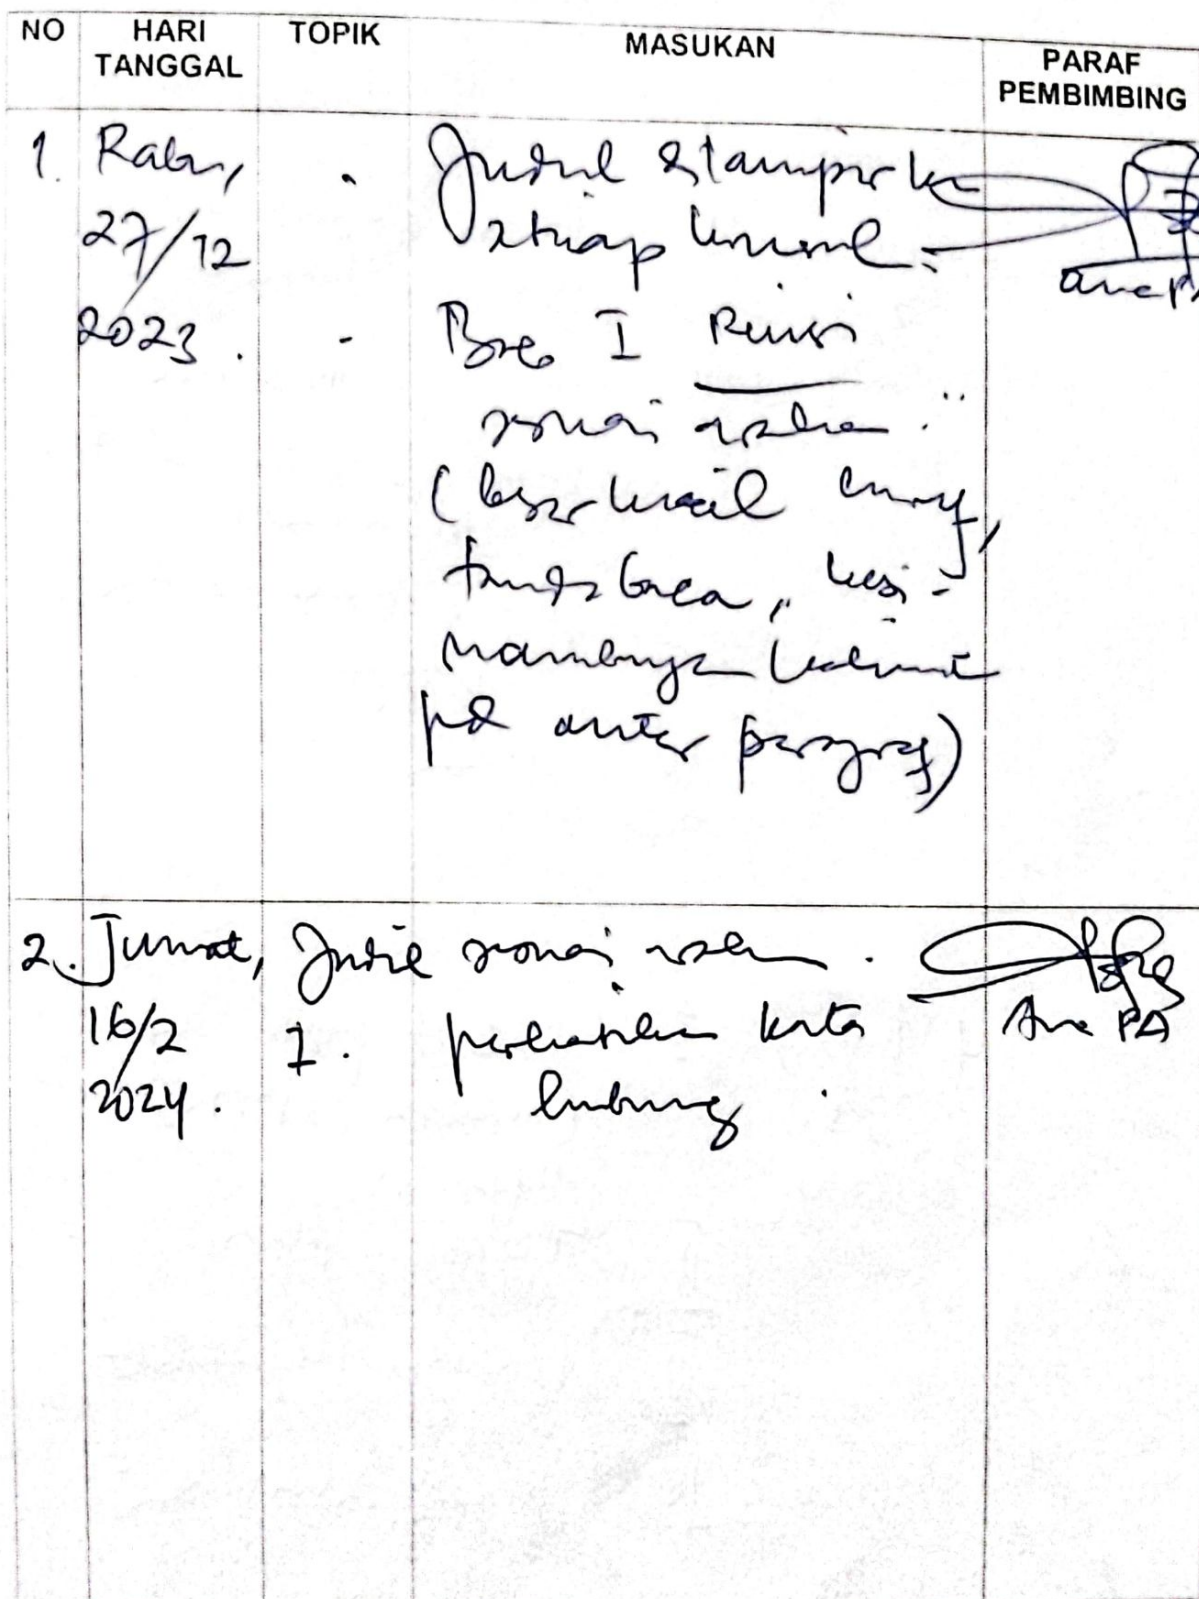 NO HARI TANGGAL TOPIK MASUKAN PARAF PEMBIMBING
1. Rabu, 27/12 2023.
- Judul ditampilkan
setiap konsul.
- Bab I Revisi
sesuai arahan.
(besar kecil huruf,
tanda baca, kesi-
nambungan kalimat
pd antar paragraf)
2. Jumat, 16/2 2024.
Judul sesuai arahan.
1. perhatikan kata
hubung.
Ana PA